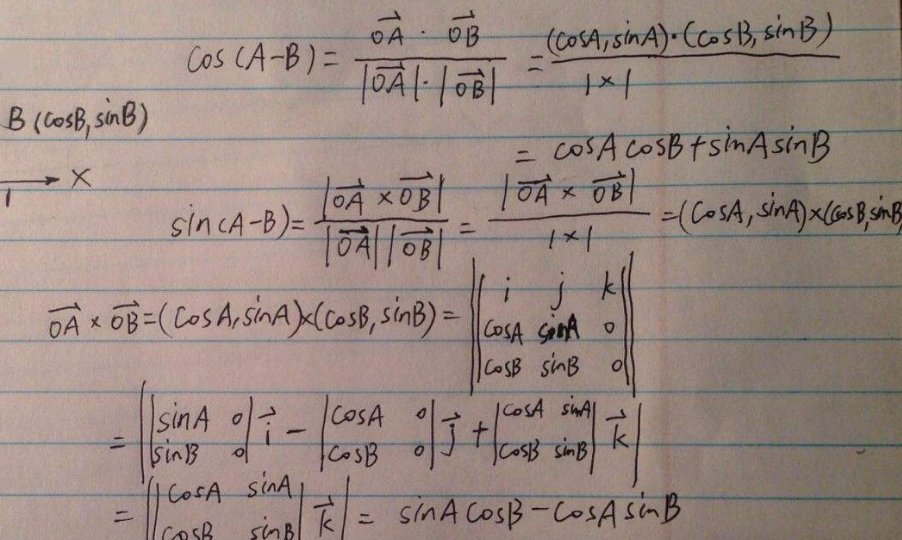 cos(A-B) = \frac{\overrightarrow{OA} \cdot \overrightarrow{OB}}{|\overrightarrow{OA}| \cdot |\overrightarrow{OB}|} = \frac{(cosA, sinA) \cdot (cosB, sinB)}{1 \times 1}
B (cosB, sinB)
= cosA cosB + sinA sinB
→ X
1
sin(A-B) = \frac{|\overrightarrow{OA} \times \overrightarrow{OB}|}{|\overrightarrow{OA}| |\overrightarrow{OB}|} = \frac{|\overrightarrow{OA} \times \overrightarrow{OB}|}{1 \times 1} = (cosA, sinA) × (cosB, sinB
\overrightarrow{OA} × \overrightarrow{OB} = (cosA, sinA) × (cosB, sinB) = || \begin{matrix} i & j & k \\ cosA & sinA & 0 \\ cosB & sinB & 0 \end{matrix} ||
= | \begin{vmatrix} sinA & 0 \\ sinB & 0 \end{vmatrix} \vec{i} - \begin{vmatrix} cosA & 0 \\ cosB & 0 \end{vmatrix} \vec{j} + \begin{vmatrix} cosA & sinA \\ cosB & sinB \end{vmatrix} \vec{k} |
= | \begin{vmatrix} cosA & sinA \\ cosB & sinB \end{vmatrix} \vec{k} | = sinA cosB - cosA sinB